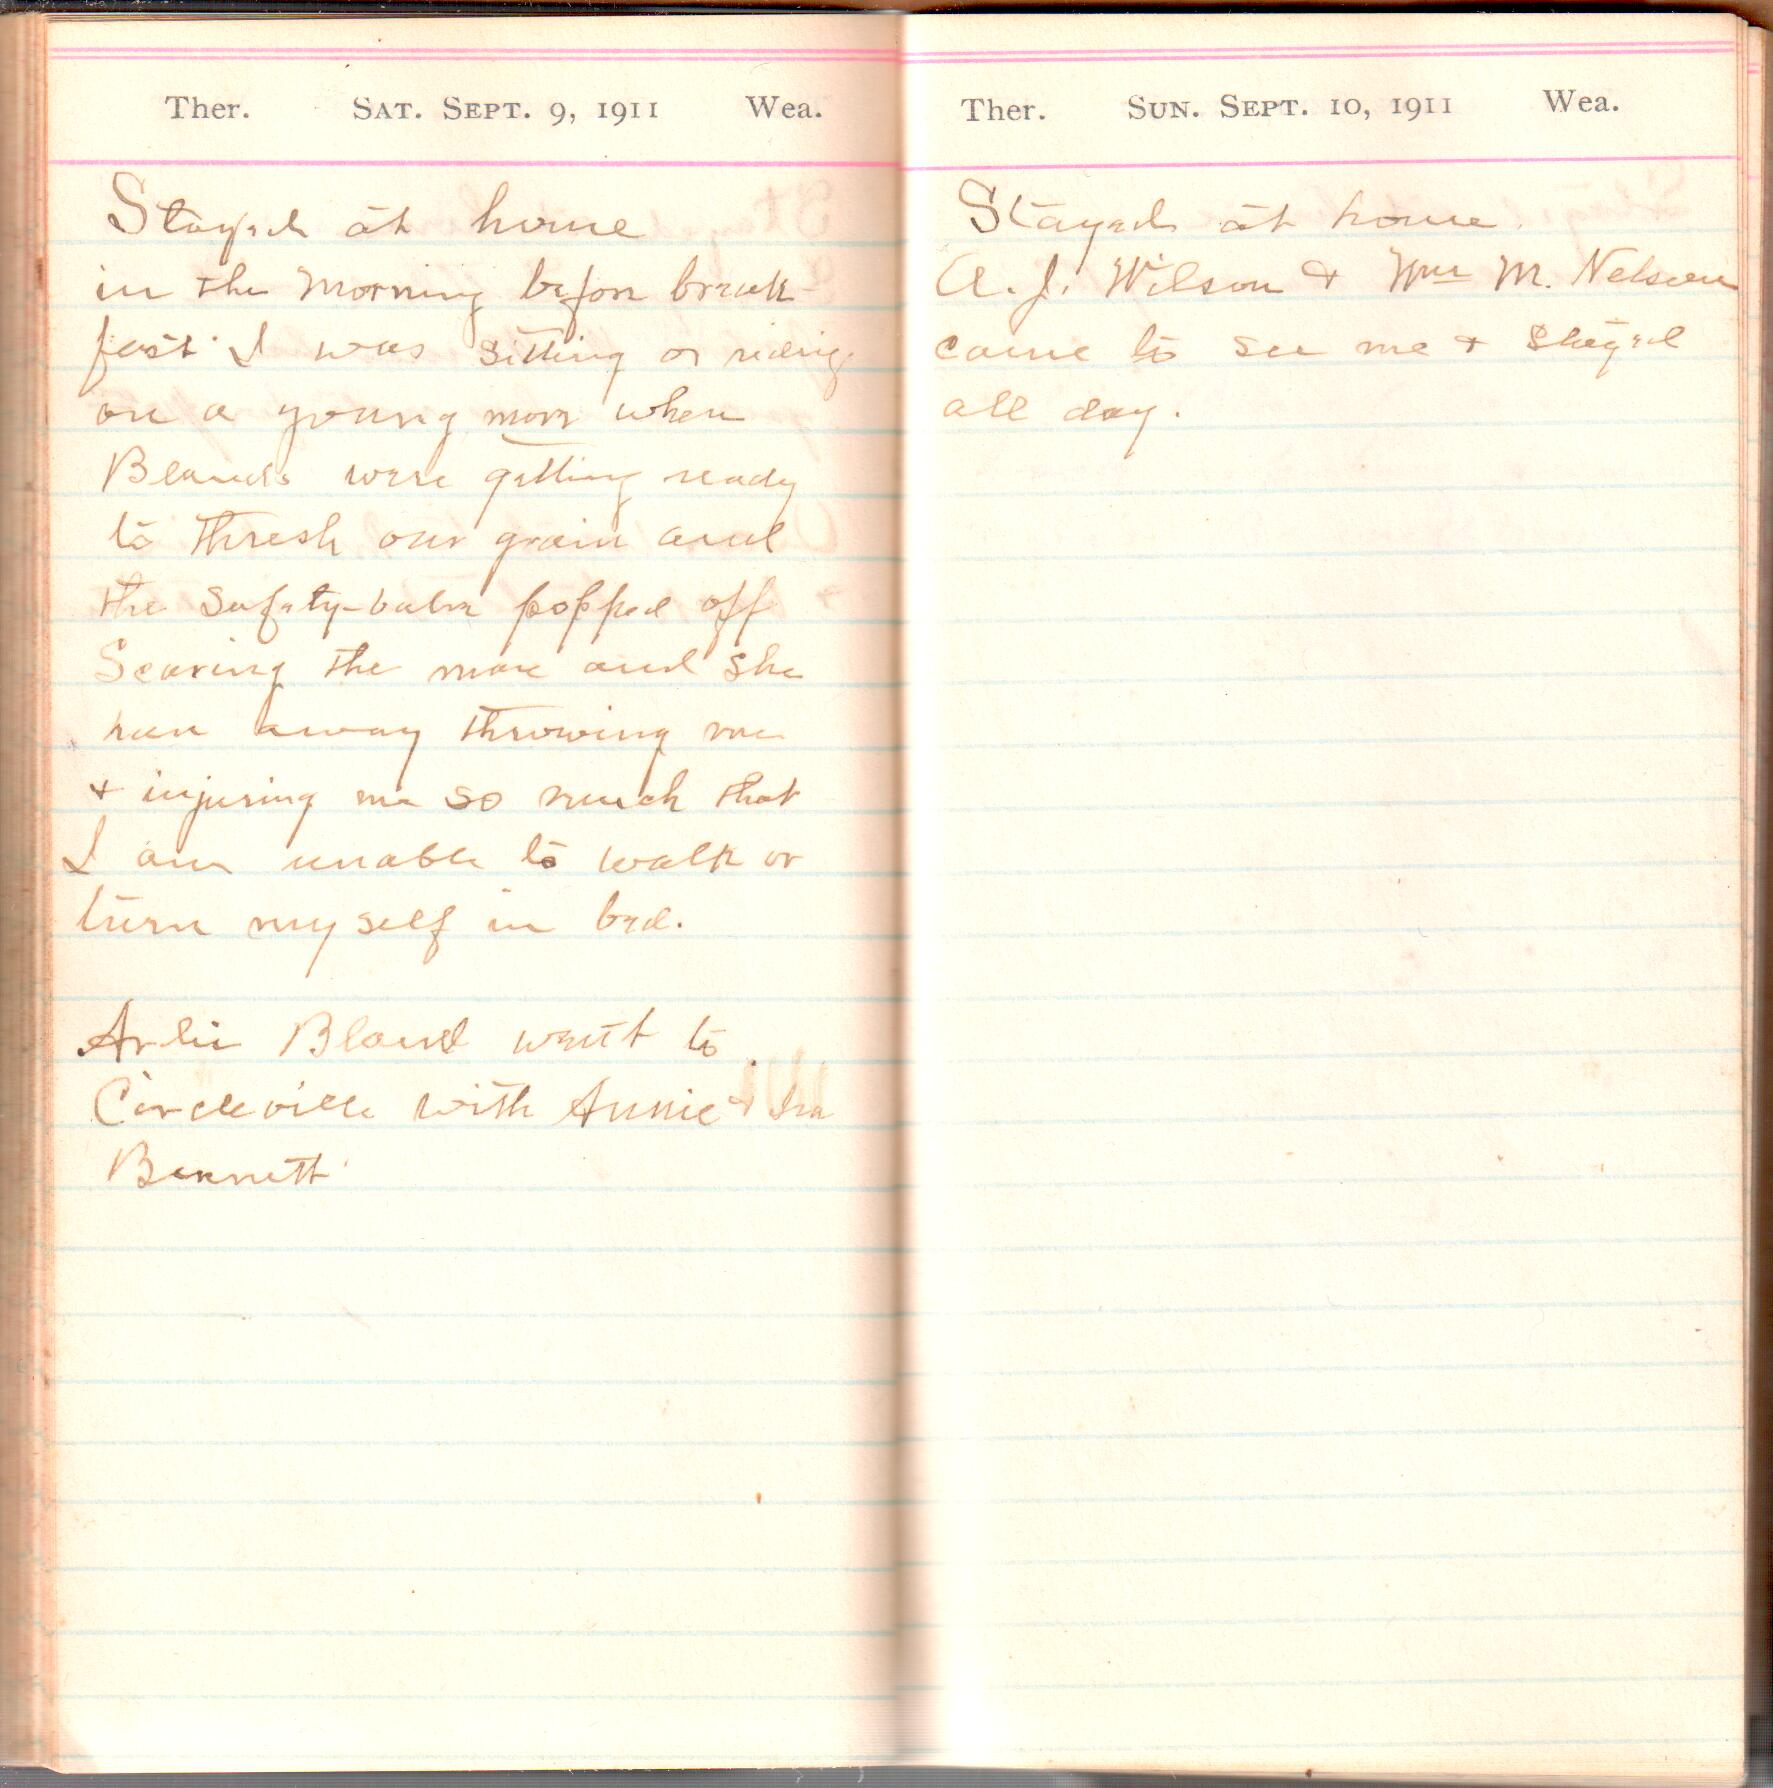 Ther. SAT. SEPT. 9, 1911 Wea.
Stayed at home
in the morning before break-
fast I was sitting or riding
on a young mare when
Blands were getting ready
to thresh our grain and
the safety-valve popped off
Scaring the mare and she
ran away throwing me
& injuring me so much that
I am unable to walk or
turn myself in bed.
Arlie Bland went to
Circleville with Annie & Ira
Bennett
Ther. SUN. SEPT. 10, 1911 Wea.
Stayed at home.
A. J. Wilson & Wm M. Nelson
came to see me & stayed
all day.